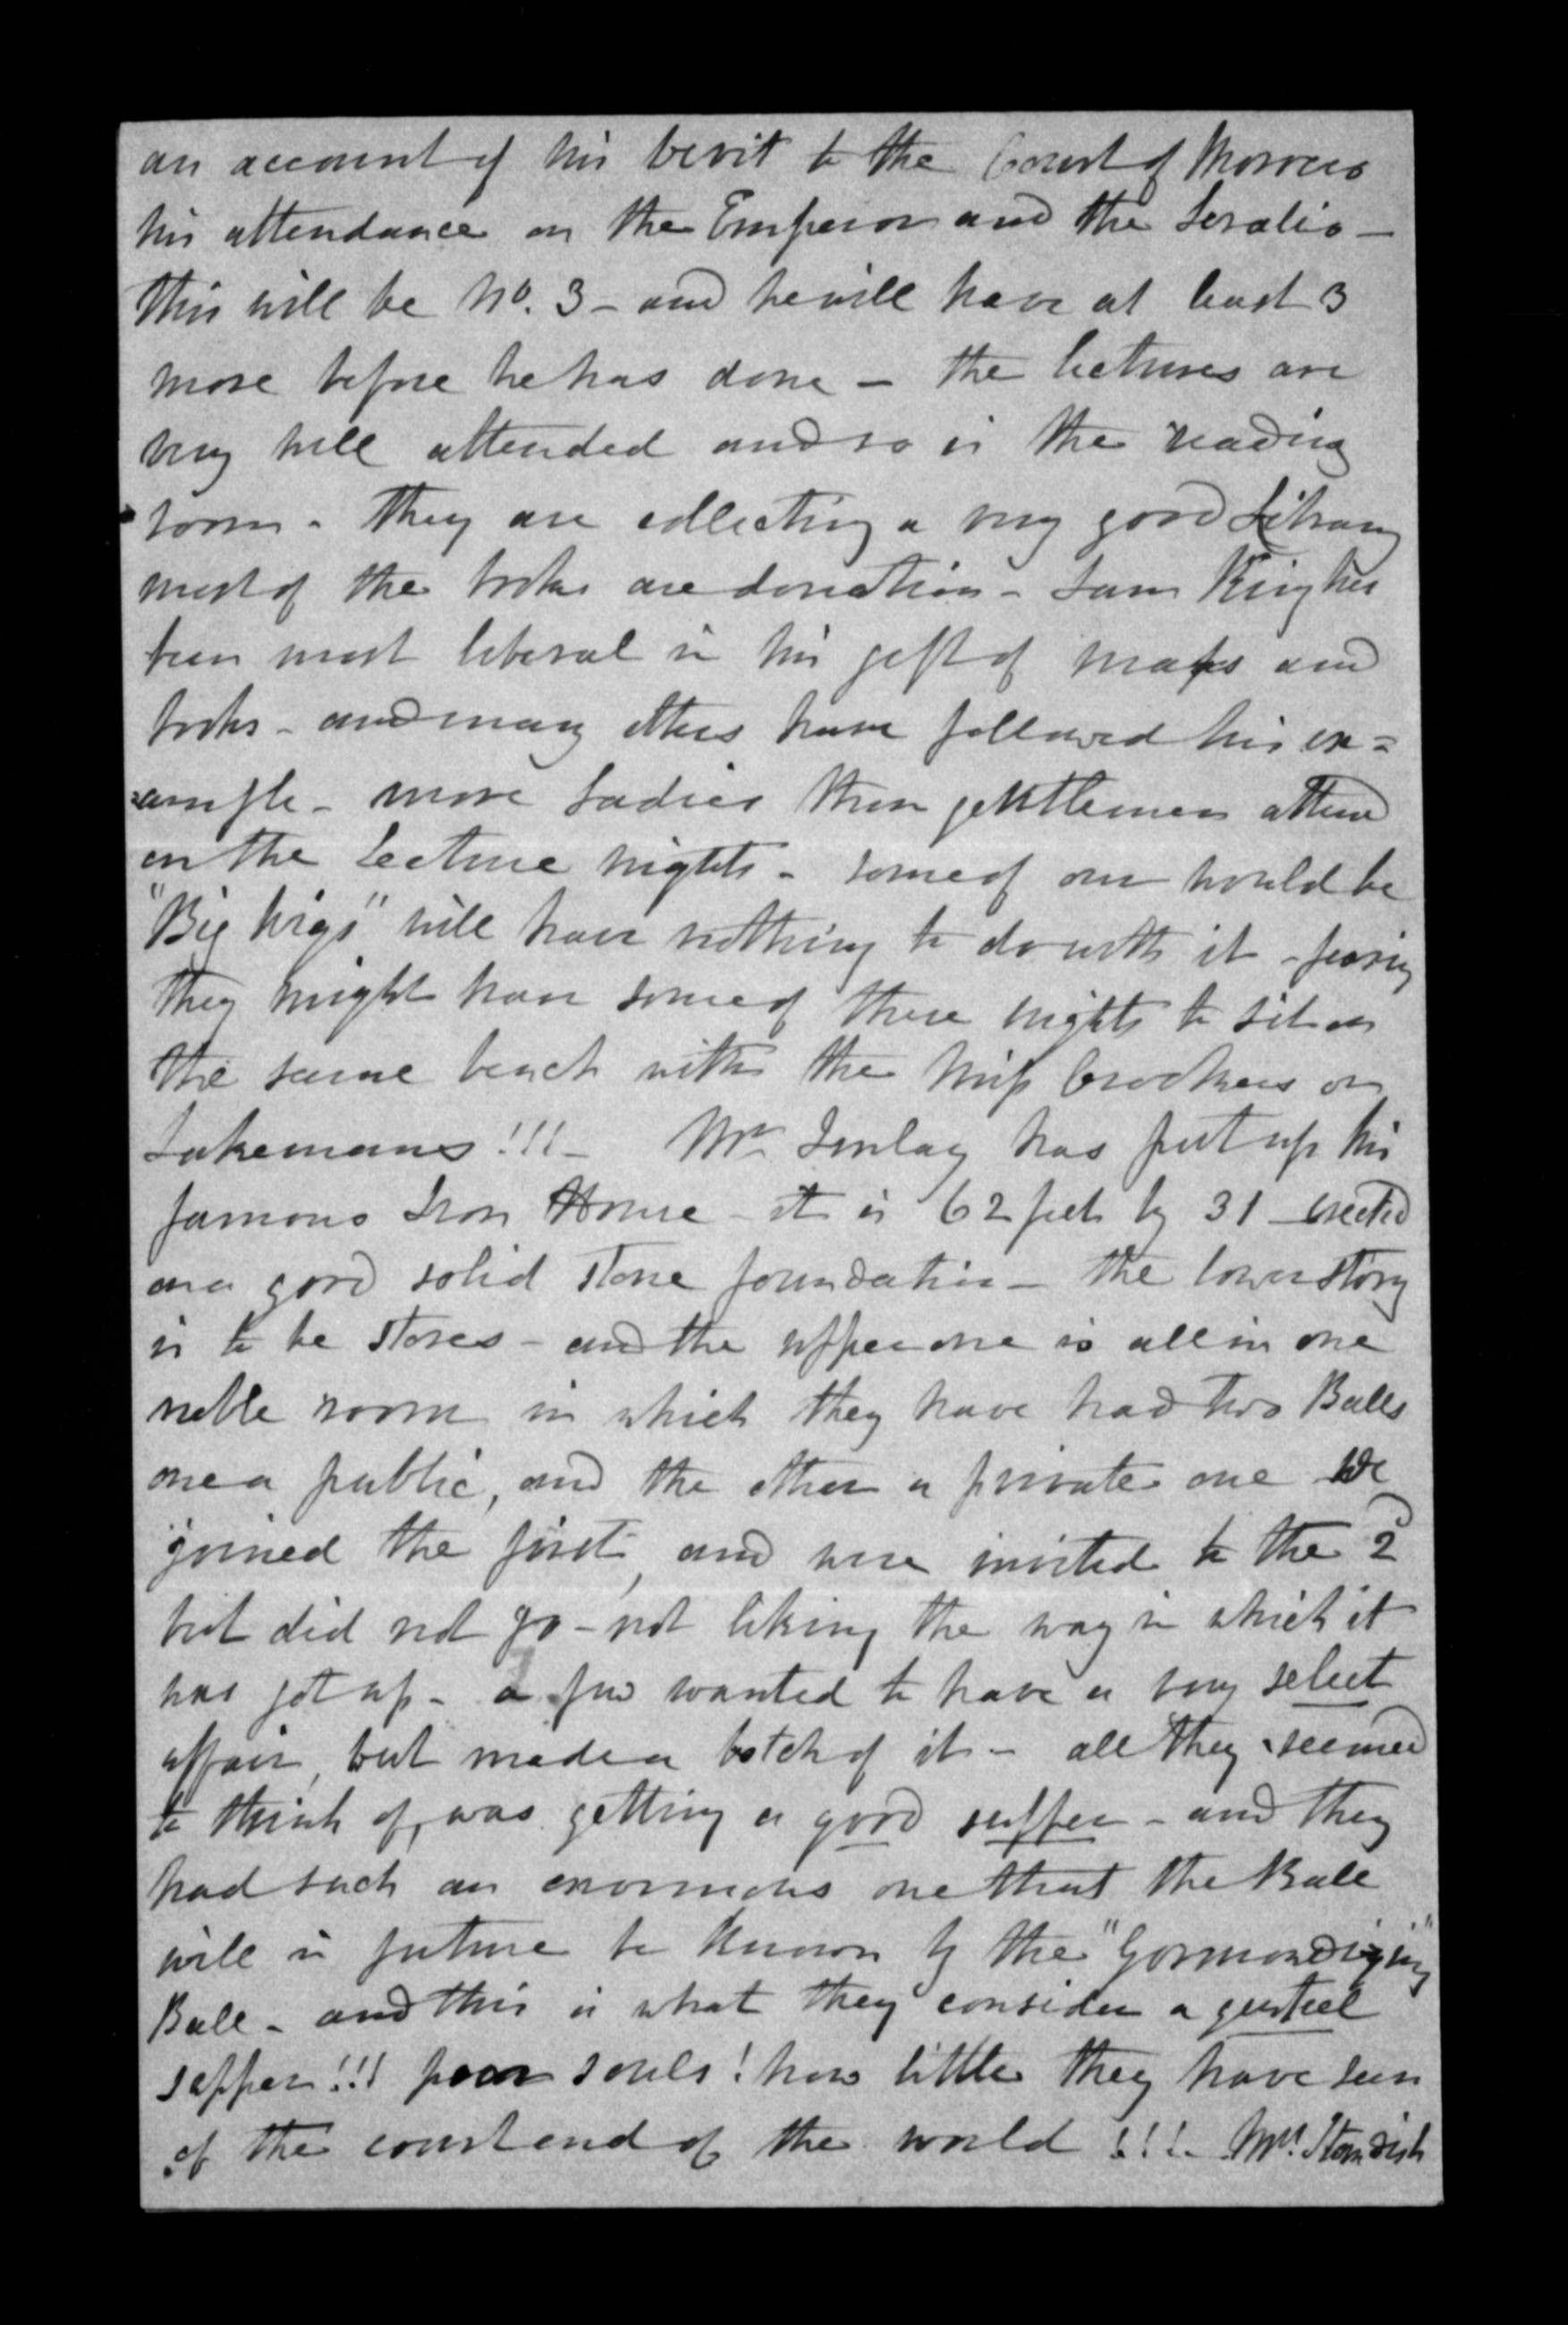 an account of his visit to the Court of Morocco
his attendance on the Emperor and the Seralio -
this will be No. 3 - and he will have at least 3
more before he has done - the lectures are
very well attended and so is the reading
room - they are collecting a very good Library
most of the books are donations - Sam King has
been most liberal in his gift of maps and
books - and many others have followed his ex=
=ample - more Ladies than gentlemen attend
on the Lecture nights - some of our would be
"Big wigs" will have nothing to do with it - fearing
they might have some of these nights to sit on
the same bench with the Miss Crockers or
Lakemans!!! - Mr. Imlay has put up his
famous Iron House - it is 62 feet by 31 - erected
on a good solid stone foundation - the lower story
is to be stores - and the upper one is all in one
noble room in which they have had two Balls
one a public, and the other a private one We
joined the first, and were invited to the 2d
but did not go - not liking the way in which it
was got up - a few wanted to have a very select
affair, but made a botch of it - all they seemed
to think of, was getting a good supper - and they
had such an enormous one that the Ball
will in future be known by the "Gormondizing"
Ball - and this is what they consider a genteel
supper!!! poor souls! how little they have seen
of the court end of the world!!! - Mrs. Standish